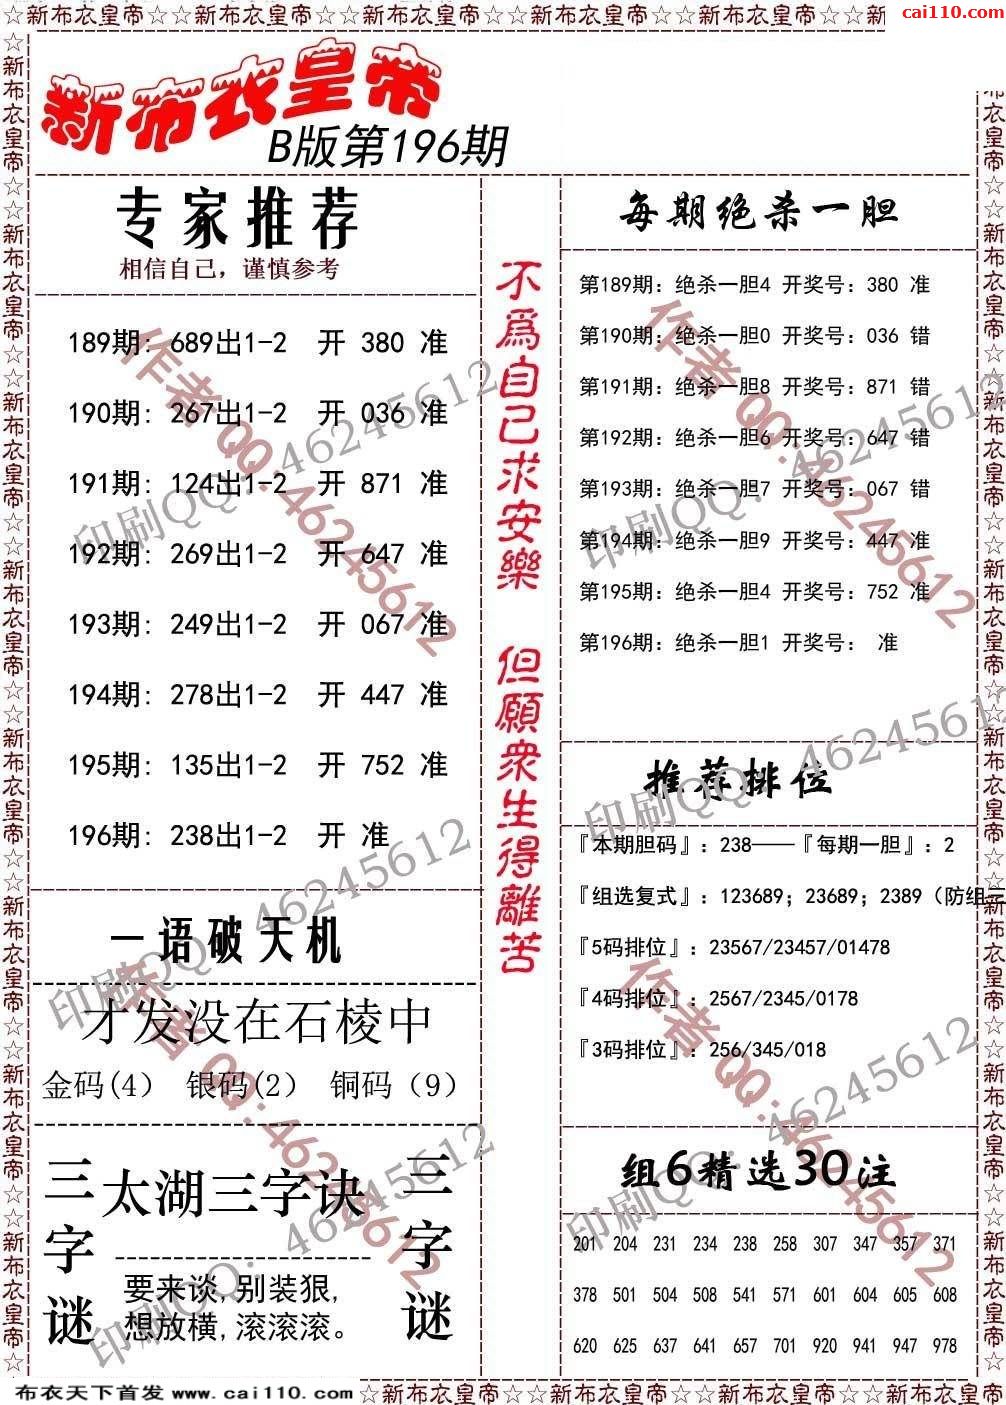 ☆新布衣皇帝☆☆新布衣皇帝☆☆新布衣皇帝☆☆新布衣皇帝☆☆新布衣皇帝☆☆新布衣皇帝☆
cai110.com
新布衣皇帝
B版第196期
专家推荐
相信自己，谨慎参考
189期: 689出1-2 开 380 准
190期: 267出1-2 开 036 准
191期: 124出1-2 开 871 准
192期: 269出1-2 开 647 准
193期: 249出1-2 开 067 准
194期: 278出1-2 开 447 准
195期: 135出1-2 开 752 准
196期: 238出1-2 开 准
一语破天机
才发没在石棱中
金码(4) 银码(2) 铜码（9）
三字谜
太湖三字诀
要来谈,别装狠,
想放横,滚滚滚。
三字谜
不爲自己求安樂 但願衆生得離苦
每期绝杀一胆
第189期: 绝杀一胆4 开奖号: 380 准
第190期: 绝杀一胆0 开奖号: 036 错
第191期: 绝杀一胆8 开奖号: 871 错
第192期: 绝杀一胆6 开奖号: 647 错
第193期: 绝杀一胆7 开奖号: 067 错
第194期: 绝杀一胆9 开奖号: 447 准
第195期: 绝杀一胆4 开奖号: 752 准
第196期: 绝杀一胆1 开奖号: 准
推荐排位
『本期胆码』: 238——『每期一胆』: 2
『组选复式』: 123689; 23689; 2389（防组三
『5码排位』: 23567/23457/01478
『4码排位』: 2567/2345/0178
『3码排位』: 256/345/018
组6精选30注
201 204 231 234 238 258 307 347 357 371
378 501 504 508 541 571 601 604 605 608
620 625 637 641 657 701 920 941 947 978
作者QQ:46245612
印刷QQ: 46245612
布衣天下首发 www.cai110.com
☆新布衣皇帝☆☆新布衣皇帝☆☆新布衣皇帝☆☆新布衣皇帝☆